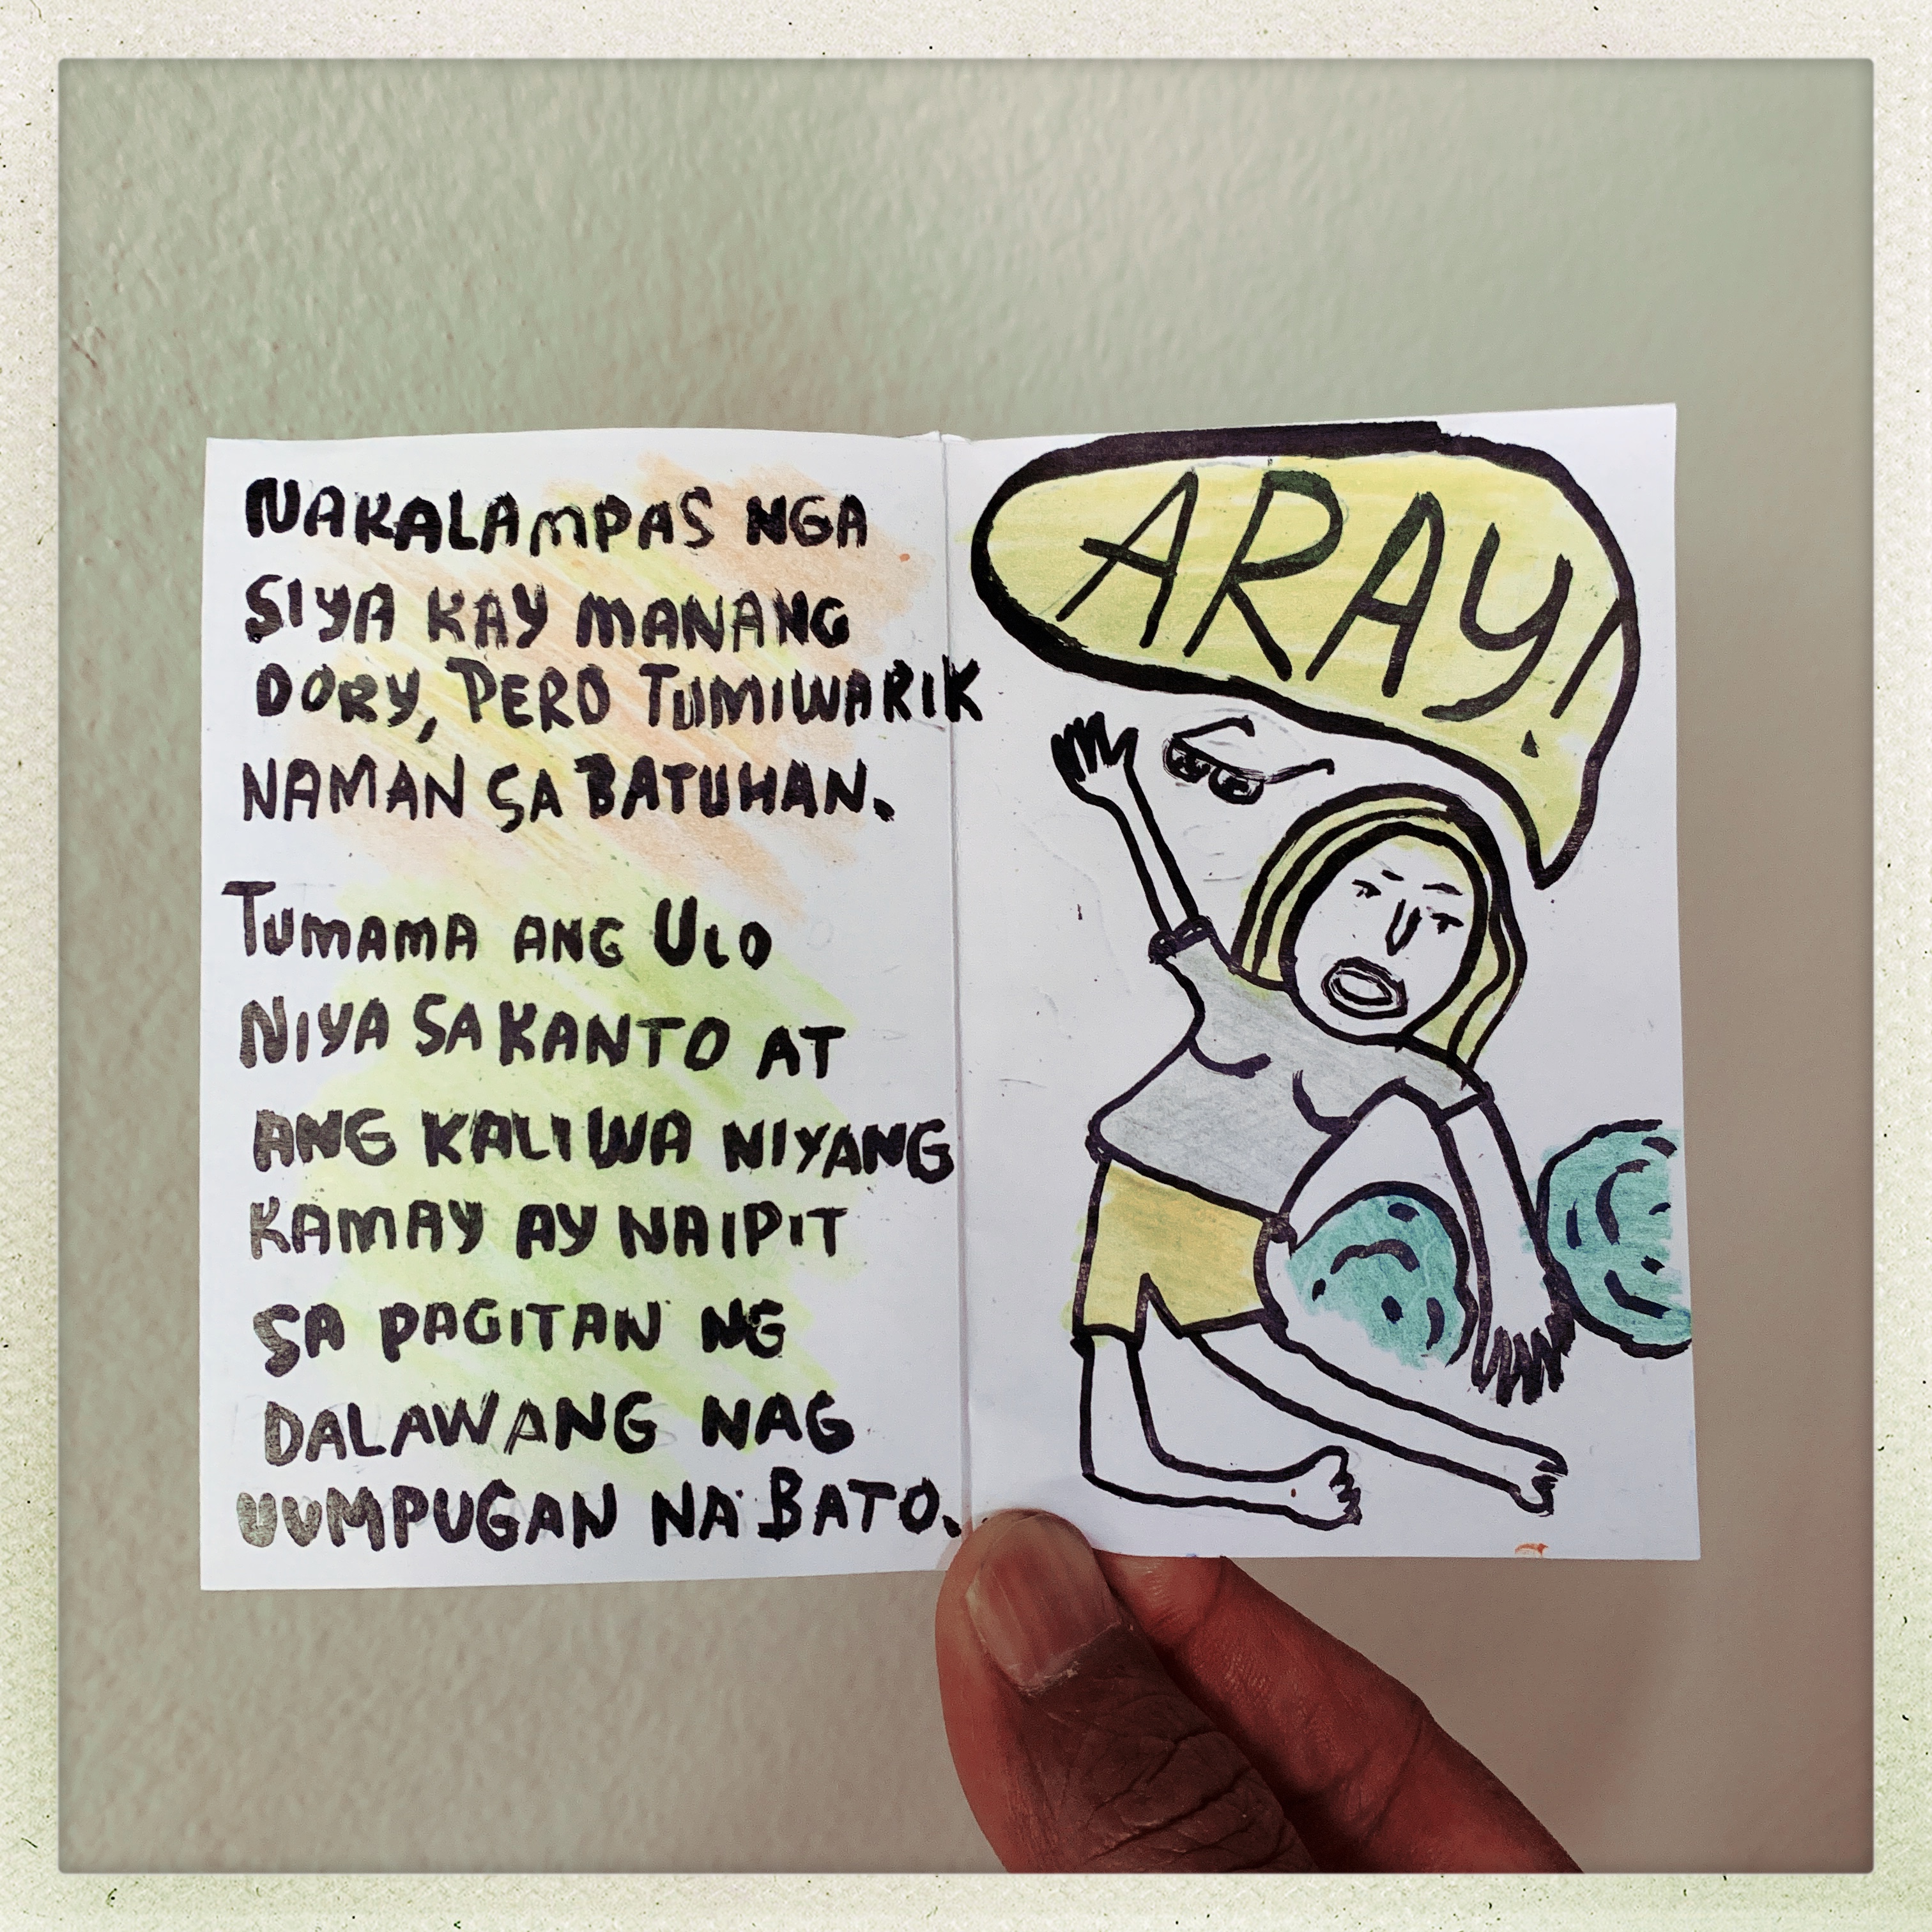 NAKALAMPAS NGA
SIYA KAY MANANG
DORY, PERO TUMIWARIK
NAMAN SA BATUHAN.
TUMAMA ANG ULO
NIYA SA KANTO AT
ANG KALIWA NIYANG
KAMAY AY NAIPIT
SA PAGITAN NG
DALAWANG NAG
UUMPUGAN NA BATO.
ARAY!